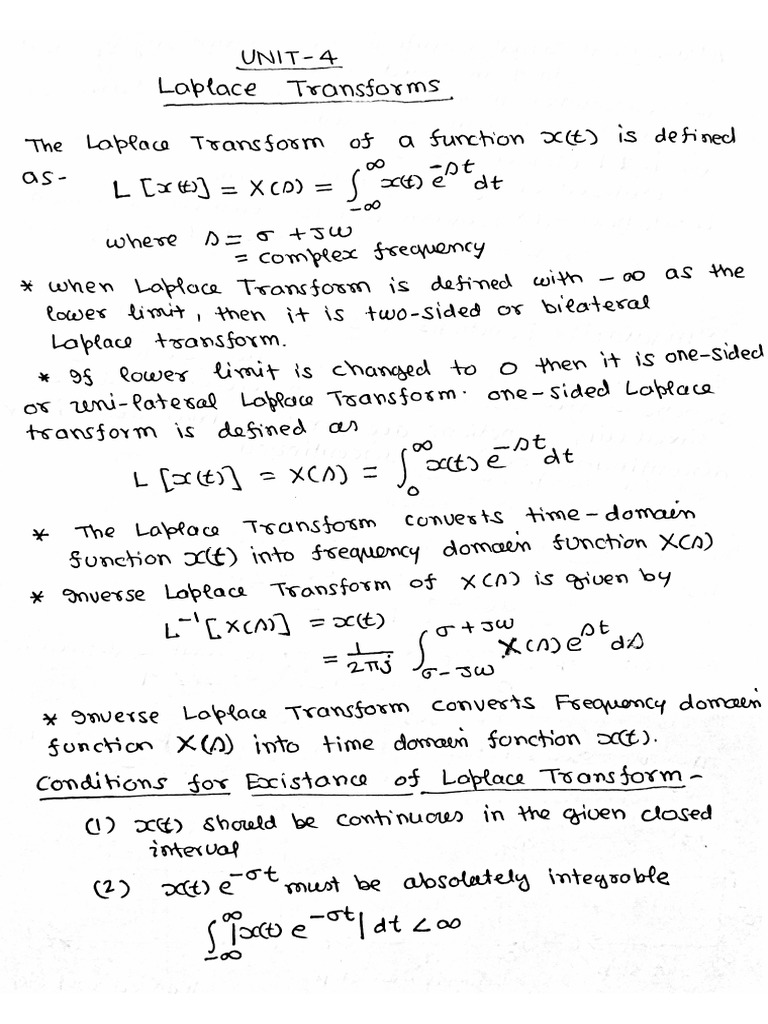 UNIT-4
Laplace Transforms
The Laplace Transform of a function x(t) is defined
as- L [x(t)] = X(s) = ∫_{-∞}^{∞} x(t) e^{-st} dt
where s = σ + jω
= complex frequency
* when Laplace Transform is defined with -∞ as the
lower limit, then it is two-sided or bilateral
Laplace transform.
* If lower limit is changed to 0 then it is one-sided
or uni-lateral Laplace Transform. one-sided Laplace
transform is defined as
L [x(t)] = X(s) = ∫_{0}^{∞} x(t) e^{-st} dt
* The Laplace Transform converts time-domain
function x(t) into frequency domain function X(s)
* Inverse Laplace Transform of X(s) is given by
L^{-1} [X(s)] = x(t)
= 1/2πj ∫_{σ-jω}^{σ+jω} X(s) e^{st} ds
* Inverse Laplace Transform converts Frequency domain
function X(s) into time domain function x(t).
Conditions for Existance of Laplace Transform-
(1) x(t) should be continuous in the given closed
interval
(2) x(t) e^{-σt} must be absolutely integrable
∫_{-∞}^{∞} |x(t) e^{-σt}| dt < ∞